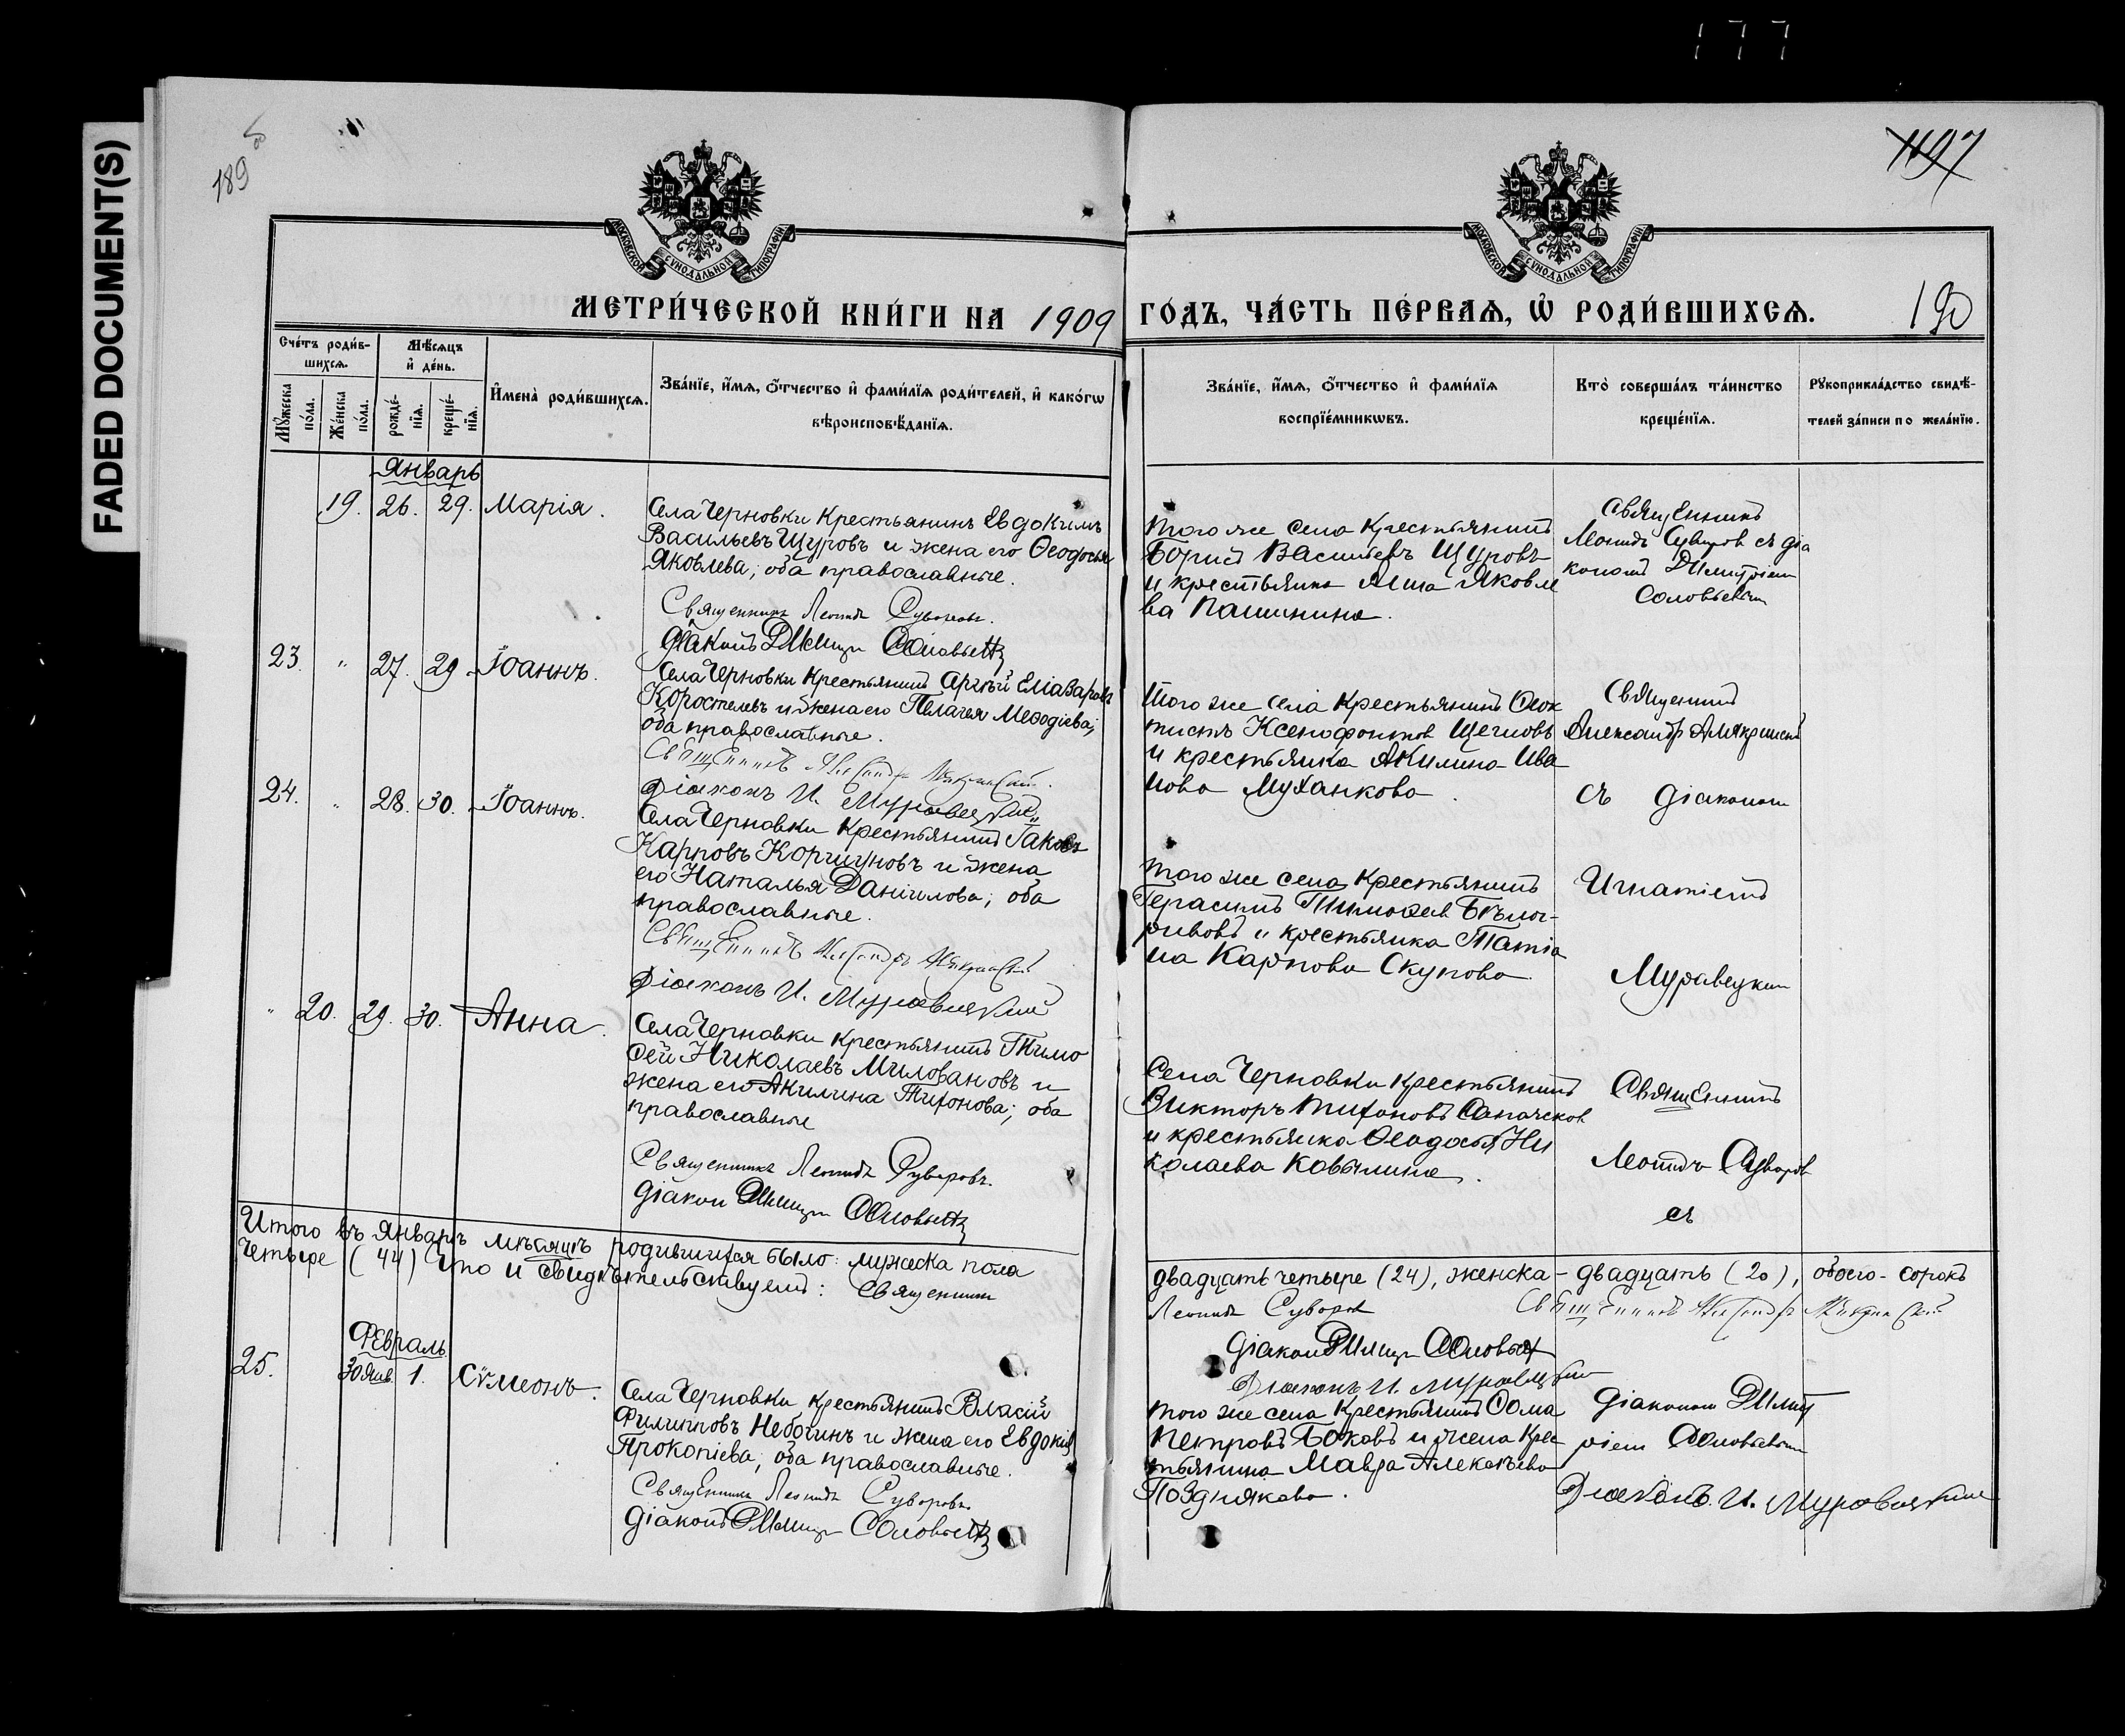 177
FADED DOCUMENT(S)
189 об
1197
МОСКОВСКОЙ СѴНОДАЛЬНОЙ ТИПОГРАФІИ
МОСКОВСКОЙ СѴНОДАЛЬНОЙ ТИПОГРАФІИ
МЕТРИ́ЧЕСКОЙ КНИ́ГИ НА 1909 ГО́ДЪ, ЧА́СТЬ ПЕ́РВАѦ, Ѡ҆ РОДИ́ВШИХСѦ. 190
Сче́тъ роди́в-
шихсѧ.
Мꙋ́жеска
по́ла.
Же́нска
по́ла.
Мѣ́сѧцъ
и҆ де́нь.
рожде́-
нїѧ.
креще́-
нїѧ.
И҆мена̀ роди́вшихсѧ.
Зва́нїе, и҆́мѧ, ѻ҆́тчество и҆ фами́лїѧ роди́телей, и҆ како́гѡ
вѣроисповѣ́данїѧ.
Зва́нїе, и҆́мѧ, ѻ҆́тчество и҆ фами́лїѧ
воспрїе́мникѡвъ.
Кто̀ соверша́лъ та́инство
креще́нїѧ.
Рꙋкоприкла́дство свидѣ́-
телей за́писи по жела́нїю.
Январь
19. 26. 29. Марія.
Села Черновки крестьянинъ Евдокимъ
Васильевъ Щуровъ и жена его Ѳеодосья
Яковлева; оба православные.
Священникъ Леонидъ Суворовъ.
Діаконъ Димитри Соловьевъ
того же села крестьянинъ
Борисъ Васильевъ Щуровъ
и крестьянка Анна Яковле
ва Пашинина.
Священникъ
Леонидъ Суворовъ съ діа
кономъ Димитріемъ
Соловьевымъ
23. " 27. 29 Іоаннъ.
Села Черновки крестьянинъ Сергѣй Еліазаровъ
Коростелевъ и жена его Пелагея Меѳодіева;
оба православные.
Священникъ Александръ
Діаконъ И. Муравецкій
Того же села крестьянинъ Ѳеок
тистъ Ксенофонтовъ Щегловъ
и крестьянка Акилина Ива
нова Муханкова.
Священникъ
Александръ
съ діакономъ
Игнатіемъ
Муравецкимъ
24. " 28. 30. Іоаннъ.
Села Черновки крестьянинъ Іаковъ
Карповъ Коршуновъ и жена
его Наталья Даніилова; оба
православные.
Священникъ Александръ
Діаконъ И. Муравецкій
того же села крестьянинъ
Герасимъ Тимоѳеевъ Бѣлог-
ривовъ и крестьянка Татіа
на Карпова Скупова
" 20. 29. 30. Анна.
Села Черновки крестьянинъ Тимо
ѳей Николаевъ Миловановъ и
жена его Акилина Тихонова; оба
православные
Священникъ Леонидъ Суворовъ.
Діаконъ Димитри Соловьевъ
Села Черновки крестьянинъ
Викторъ Тихоновъ Сапаческов
и крестьянка Ѳеодосья Ни
колаева Ковылина.
Священникъ
Леонидъ Суворов
съ
Итого въ январѣ мѣсяцѣ родившихся было: мужеска пола двадцать четыре (24), женска - двадцать (20), обоего - сорокъ
четыре (44) Что и свидѣтельствуемъ: Священникъ Леонидъ Суворовъ Священникъ Александръ
Діаконъ Димитри Соловьевъ
Діаконъ И. Муравецкій
Февраль
25. 30 янв. 1. Сѵмеонъ.
Села Черновки крестьянинъ Власій
Филипповъ Небогинъ и жена его Евдокія
Прокопіева; оба православные.
Священникъ Леонидъ Суворовъ
Діаконъ Димитри Соловьевъ
того же села крестьянинъ Ѳома
Петровъ Боковъ и жена крес
тьянина Мавра Алексѣева
Позднякова.
Діакономъ Димит
ріемъ Соловьевымъ
Діаконъ И. Муравецкій